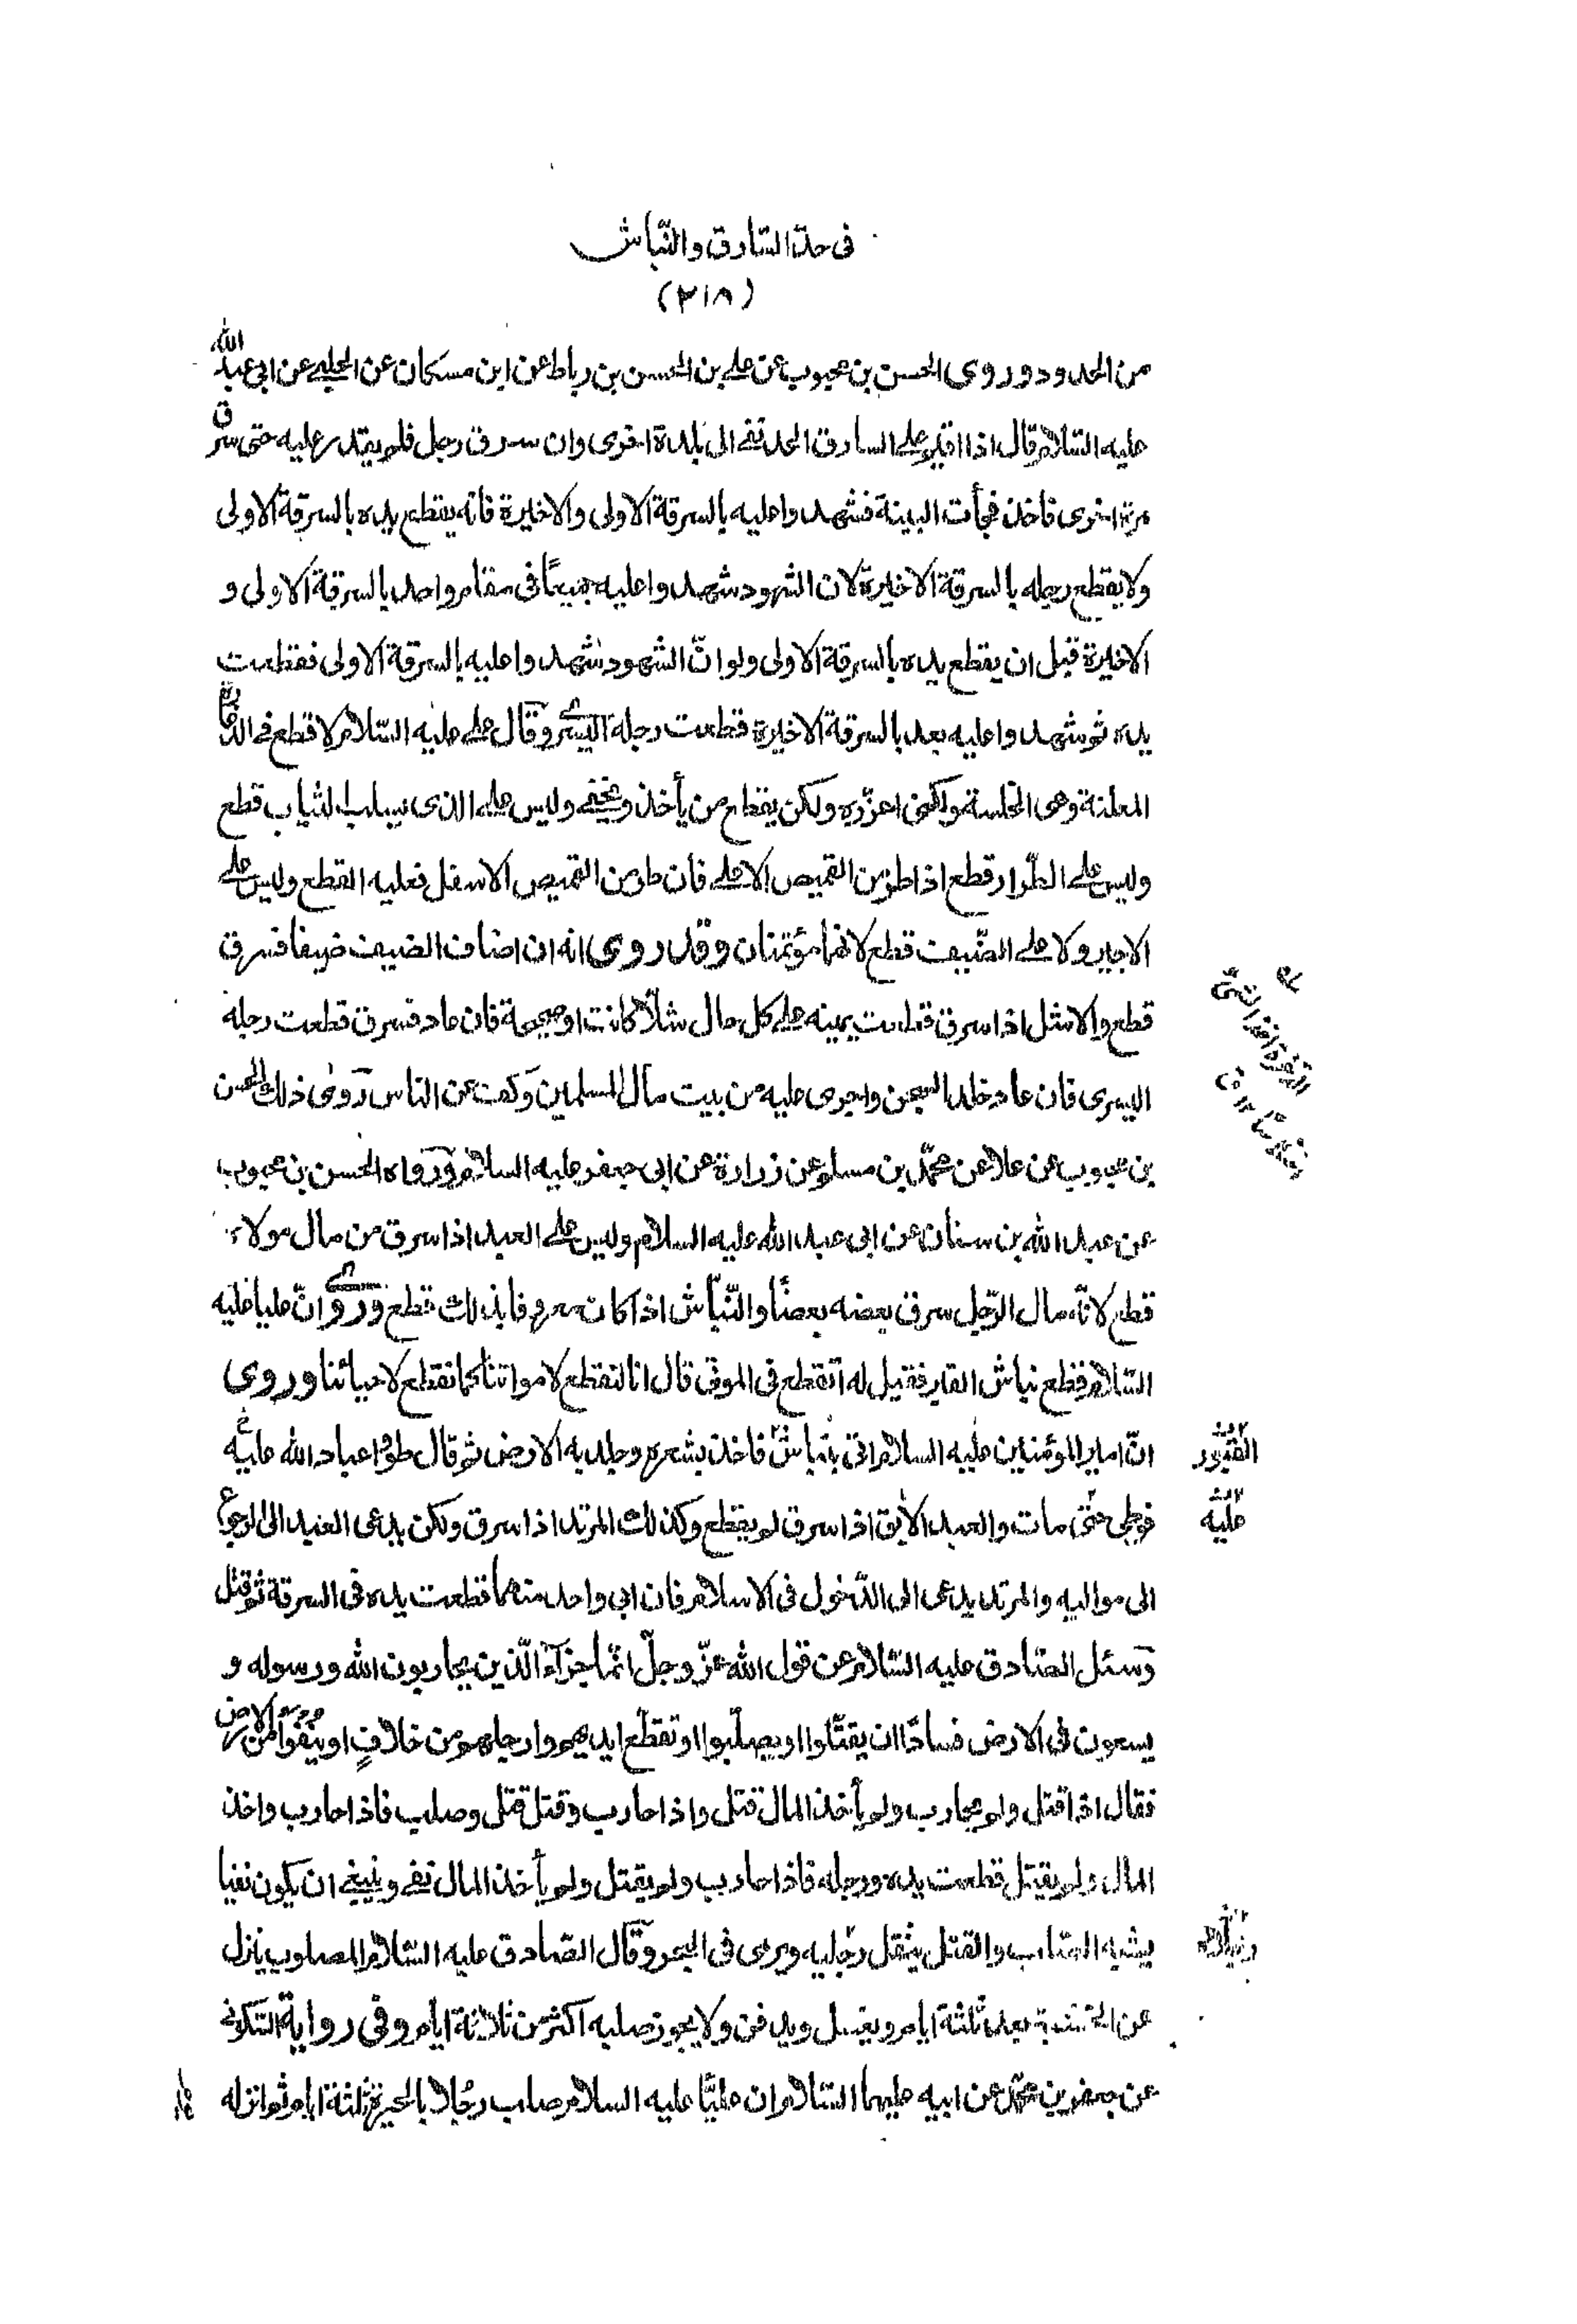 فى حدّ السّارق والنّباش
(٢١٨)
من الحدود وروى الحسن بن محبوب عن علي بن الحسن بن رباط عن ابن مسكان عن الحلبي عن ابى عبد الله
عليه السّلام قال اذا اقيم على السارق الحد نفى الى بلدة اخرى وان سرق رجل فلم يقدر عليه حتى سرق
مرة اخرى فاخذ فجأت البينة فشهدوا عليه بالسرقة الاولى والاخيرة فانه يقطع يده بالسرقة الاولى
ولا يقطع رجله بالسرقة الاخيرة لان الشهود شهدوا عليه جميعًا فى مقام واحد بالسرقة الاولى و
الاخيرة قبل ان يقطع يده بالسرقة الاولى ولو انّ الشهود شهدوا عليه بالسرقة الاولى فقطعت
يده ثم شهدوا عليه بعد بالسرقة الاخيرة قطعت رجله اليسرى وقال علي عليه السّلام لا قطع في الدغارة
المعلنة وهى الخلسة ولكنى اعزّره ولكن يقطع من يأخذ ويخفى وليس على الذى يسلب الثياب قطع
وليس على الطّرار قطع اذا طر من القميص الاعلى فان طر من القميص الاسفل فعليه القطع وليس على
الاجير ولا على الضّيف قطع لانهما مؤتمنان وقد روى انه ان اضاف الضيف ضيفا فسرق
قطع والاشل اذا سرق قطعت يمينه على كل حال شلّاً كانت او صحيحة فان عاد فسرق قطعت رجله
اليسرى فان عاد خلد السجن واجرى عليه من بيت مال المسلمين وكف عن الناس روى ذلك الحسن
بن محبوب عن علا عن محمّد بن مسلم عن زرارة عن ابى جعفر عليه السلام ورواه الحسن بن محبوب
عن عبد الله بن سنان عن ابى عبد الله عليه السلام وليس على العبد اذا سرق من مال مولاه
قطع لانّه مال الرّجل سرق بعضه بعضًا والنّبّاش اذا كان معروفا بذلك قطع وروى انّ عليا عليه
السّلام قطع نباش القبر فقيل له اتقطع فى الموتى قال انا لنقطع لامواتنا كما نقطع لاحيائنا وروى
انّ امير المؤمنين عليه السلام اتى بنبّاش فاخذ بشعره وجلد به الارض ثم قال طؤا عباد الله عليه
فوطى حتى مات والعبد الآبق اذا سرق لم يقطع وكذلك المرتد اذا سرق ولكن يدعى العبد الى الرجوع
الى مواليه والمرتد يدعى الى الدّخول فى الاسلام فان ابى واحد منهما قطعت يده فى السرقة ثم قتل
وسئل الصّادق عليه السّلام عن قول الله عزّ وجلّ انّما جزآء الّذين يحاربون الله ورسوله و
يسعون فى الارض فسادًا ان يقتّلوا او يصلّبوا او تقطّع ايديهم وارجلهم من خلافٍ او ينفوا من الارض
فقال اذا قتل ولم يحارب ولم يأخذ المال قتل واذا حارب وقتل قتل وصلب فاذا حارب واخذ
المال ولم يقتل قطعت يده ورجله فاذا حارب ولم يقتل ولم يأخذ المال نفى وينبغى ان يكون نفيا
يشبه الصّلب والقتل يثقل رجليه ويرمى فى البحر وقال الصّادق عليه السّلام المصلوب ينزل
عن الخشبة بعد ثلثة ايام ويغسل ويدفن ولا يجوز صلبه اكثر من ثلاثة ايام وفى رواية السّكونى
عن جعفر بن محمّد عن ابيه عليهما السّلام ان عليًّا عليه السلام صلب رجلا بالحيرة ثلثة ايام ثم انزله
القبور
عليه